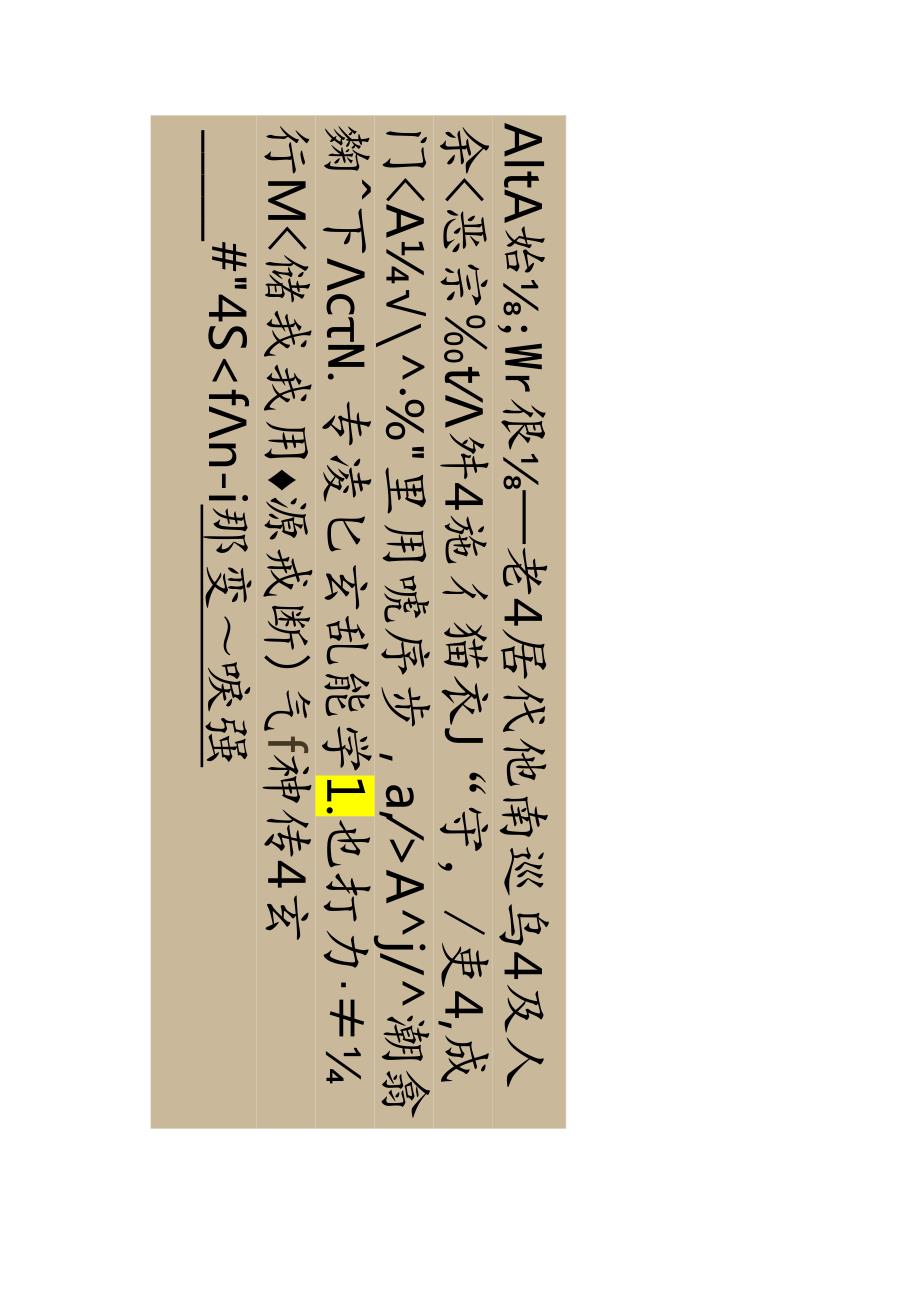 AltA始⅛;Wr很⅛—老4居代他南巡乌4及人
余<恶宗‰t/Λ舛4施彳猫衣J“守，/吏4,成
门<A¼√\^·%"里用唬序步，a/>A^j/^潮翕
䴗^下ΛcτN.专凌匕玄乱能学1.也打力·≠¼
行M<储我我用♦源戒断）气f神传4玄
_____#"4S<fΛn-i那变～唳强